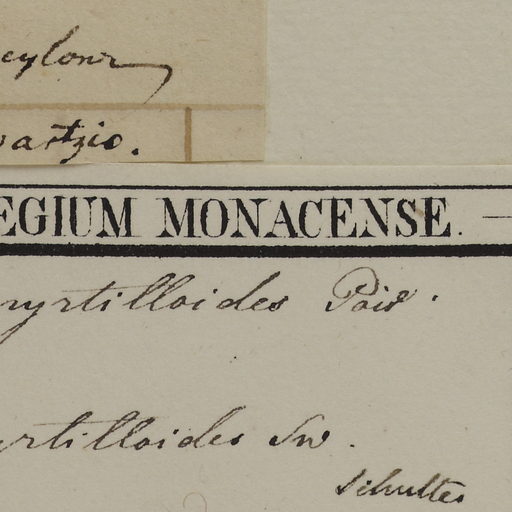 eylonr
artzio.
EGIUM MONACENSE. —
yrtilloides Poir.
rtilloides Sw.
Schultes